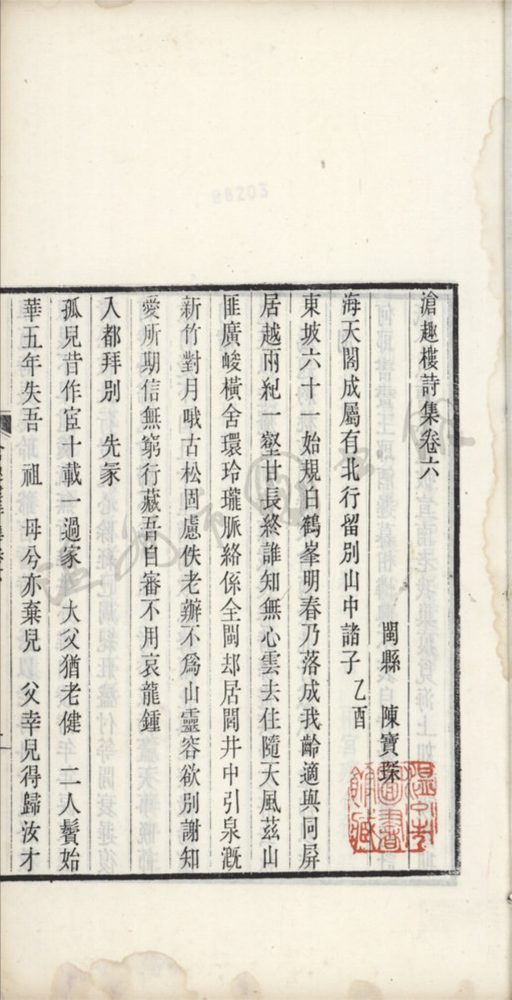 滄趣樓詩集卷六
閩縣 陳寶琛
海天閣成屬有北行留別山中諸子 乙酉
東坡六十一始規白鶴峯明春乃落成我齡適與同屏
居越兩紀一壑甘長終誰知無心雲去住隨天風茲山
匪廣峻橫舍環玲瓏脈絡係全閩却居閭井中引泉溉
新竹對月哦古松固慮佚老辦不爲山靈容欲別謝知
愛所期信無窮行藏吾自審不用哀龍鍾
入都拜別 先冢
孤兒昔作宦十載一過家 大父猶老健 二人鬢始
華五年失吾 祖 母兮亦棄兒 父幸兒得歸汝才